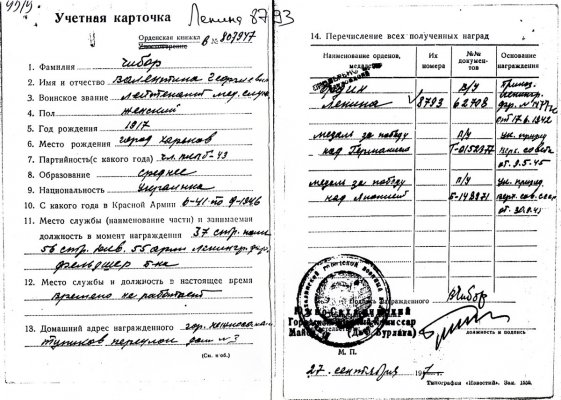 Учетная карточка
Ленина 8793
Орденская книжка
Удостоверение
в № 807947
1. Фамилия Чибор
2. Имя и отчество Валентина Георгиевна
3. Воинское звание лейтенант мед. службы
4. Пол женский
5. Год рождения 1917
6. Место рождения город Харьков
7. Партийность (с какого года) чл. ВКПб-43
8. Образование среднее
9. Национальность Украинка
10. С какого года в Красной Армии 6-41 по 9-1946
11. Место службы (наименование части) и занимаемая
должность в момент награждения 37 стр. полк
56 стр. див. 55 арм. Ленингр. фр.
фельдшер б-на
12. Место службы и должность в настоящее время
временно не работает
13. Домашний адрес награжденного гор.
переулок дом № 3
(См. н/об.)
14. Перечисление всех полученных наград
Наименование орденов, медалей
Их номера
№№ документов
Основание награждения
Орден
Ленина
8793
В/У
62708
от 17.6.1942
медаль за победу
над Германией
П/У
Т-0152977
Ук. През.
Верх. совета
от 9.5.45
медаль за победу
над Японией
П/У
Б-143971
Ук. През.
Верх. сов. СССР
от 30.9.45
Подпись награжденного ВЧибор
Южно-Сахалинский
Военный Комиссар
Майор (Бурлага)
должность и подпись
М. П.
27 сентября 194
Типография «Известий». Зак. 1950.